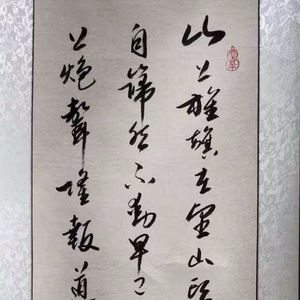 山下旌旗在望山頭
自巋然不動早已
上炮聲隆報道